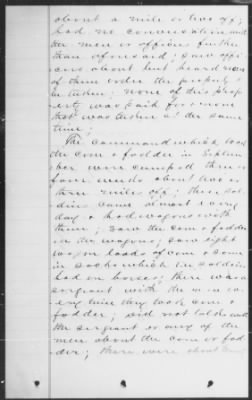 about a mile or two off;
had no conversation with
the men or officers further
than aforesaid; saw offi-
cers about but heard none
of them order the property
be taken; none of this prop-
erty was paid for & none
that was taken at the same
time;
The command which took
the corn & fodder in Septem-
ber were camped there
four weeks about two or
three miles off; these sol-
diers came almost every
day & had wagons with
them; saw the corn & fodder
in the wagons; saw eight
wagon loads of corn & some
in sacks which the soldiers
had on horses; there was a
sergeant with the men
every time they took corn &
fodder; did not talk with
the sergeant or any of the
men about the corn or fod-
der; there were about